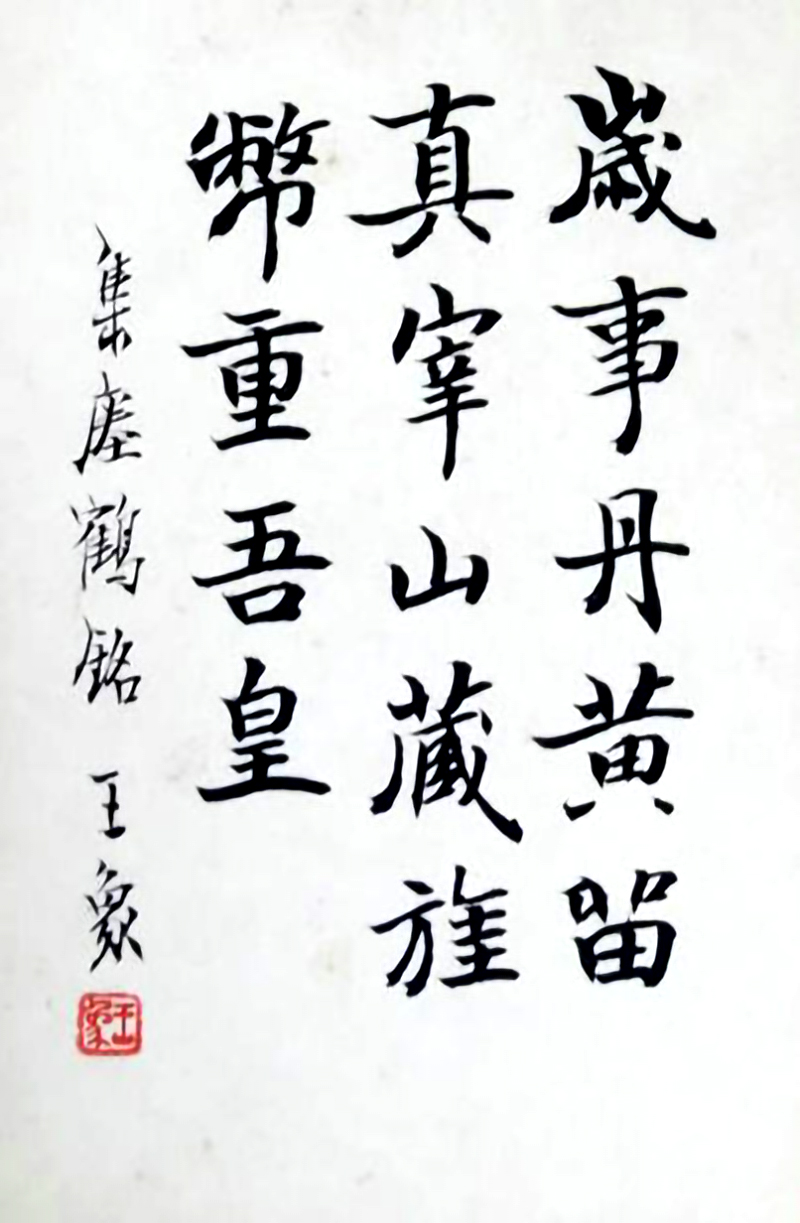 歲事丹黄留
真宰山藏旌
幣重吾皇
集瘞鶴銘 王象